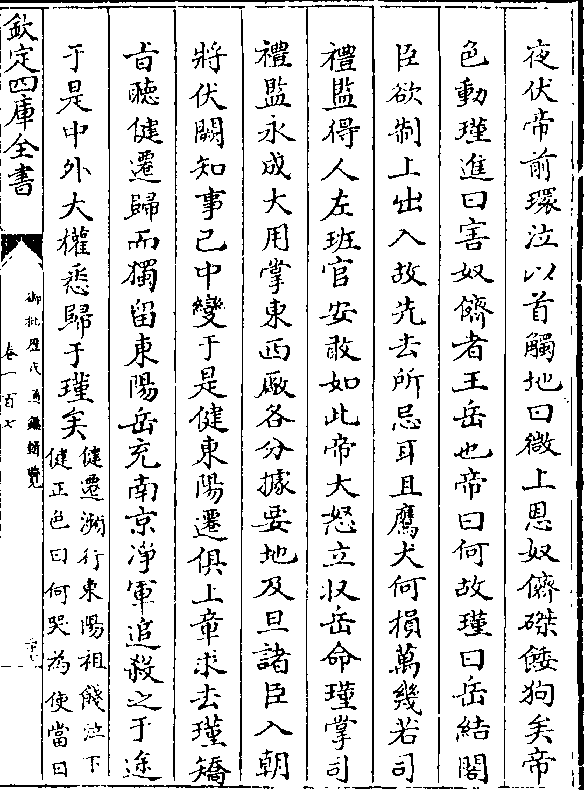 夜伏帝前環泣以首觸地曰微上恩奴儕磔餧狗矣帝
色動瑾進曰害奴儕者王岳也帝曰何故瑾曰岳結閣
臣欲制上出入故先去所忌耳且鷹犬何損萬幾若司
禮監得人左班官安敢如此帝大怒立收岳命瑾掌司
禮監永成大用掌東西厰各分據要地及旦諸臣入朝
將伏闕知事已中變于是健東陽遷俱上章求去瑾矯
旨聽健遷歸而獨留東陽岳充南京凈軍追殺之于途
于是中外大權悉歸于瑾矣健遷瀕行東陽祖餞泣下
健正色曰何哭為使當日
欽定四庫全書
御批歷代通鑑輯覽
卷一百七